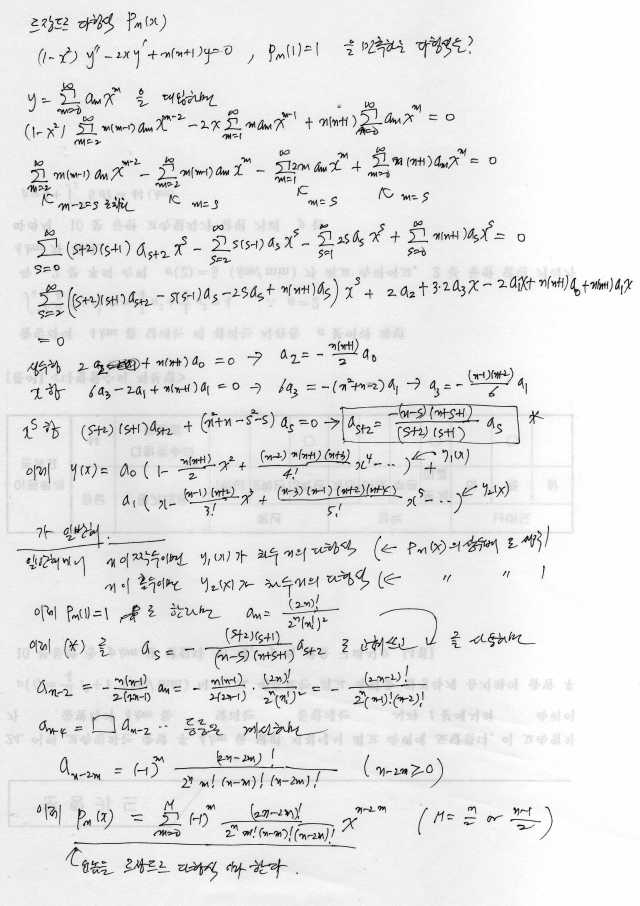 르장드르 다항식 Pₙ(x)
(1-x²) y'' - 2xy' + n(n+1)y = 0 , Pₙ(1)=1 을 만족하는 다항식은?
y = Σ_{m=0}^{∞} aₘxᵐ 을 대입하면
(1-x²) Σ_{m=2}^{∞} m(m-1)aₘx^{m-2} - 2x Σ_{m=1}^{∞} m aₘ x^{m-1} + n(n+1) Σ_{m=0}^{∞} aₘxᵐ = 0
Σ_{m=2}^{∞} m(m-1)aₘx^{m-2} - Σ_{m=2}^{∞} m(m-1)aₘxᵐ - Σ_{m=1}^{∞} 2m aₘxᵐ + Σ_{m=0}^{∞} n(n+1)aₘxᵐ = 0
m-2=s m=s m=s m=s
Σ_{s=0}^{∞} (s+2)(s+1)a_{s+2}xˢ - Σ_{s=2}^{∞} s(s-1)aₛxˢ - Σ_{s=1}^{∞} 2s aₛxˢ + Σ_{s=0}^{∞} n(n+1)aₛxˢ = 0
Σ_{s=2}^{∞} ((s+2)(s+1)a_{s+2} - s(s-1)aₛ - 2saₛ + n(n+1)aₛ) xˢ + 2a₂ + 3·2a₃x - 2a₁x + n(n+1)a₀ + n(n+1)a₁x
= 0
상수항 2a₂ + n(n+1)a₀ = 0 → a₂ = - n(n+1)/2 a₀
x항 6a₃ - 2a₁ + n(n+1)a₁ = 0 → 6a₃ = -(n²+n-2)a₁ → a₃ = - (n-1)(n+2)/6 a₁
xˢ항 (s+2)(s+1)a_{s+2} + (n²+n-s²-s)aₛ = 0 → a_{s+2} = -(n-s)(n+s+1)/((s+2)(s+1)) aₛ *
이제 y(x) = a₀ (1 - n(n+1)/2 x² + (n-2)n(n+1)(n+3)/4! x⁴ - ⋯) ← y₁(x) +
a₁ (x - (n-1)(n+2)/3! x³ + (n-3)(n-1)(n+2)(n+4)/5! x⁵ - ⋯) ← y₂(x)
가 일반해.
일반해에서 n이 짝수이면 y₁(x)가 최고차 n의 다항식 (← Pₙ(x)의 상수배로 생각)
n이 홀수이면 y₂(x)가 최고차 n의 다항식 (← 〃 〃 )
이제 Pₙ(1)=1 로 한다면 aₙ = (2n)!/(2ⁿ(n!)²)
이제 (*)를 aₛ = - (s+2)(s+1)/((n-s)(n+s+1)) a_{s+2} 로 쓰고 를 대입하면
a_{n-2} = - n(n-1)/(2(2n-1)) aₙ = - n(n-1)/(2(2n-1)) · (2n)!/(2ⁿ(n!)²) = - (2n-2)!/(2ⁿ(n-1)!(n-2)!)
a_{n-4} = □ a_{n-2} ⋯ 등등을 계산하면
a_{n-2m} = (-1)ᵐ (2n-2m)!/(2ⁿ m!(n-m)!(n-2m)!) (n-2m≥0)
이제 Pₙ(x) = Σ_{m=0}^{M} (-1)ᵐ (2n-2m)!/(2ⁿ m!(n-m)!(n-2m)!) x^{n-2m} (M = n/2 or (n-1)/2)
요놈을 르장드르 다항식이라 한다.